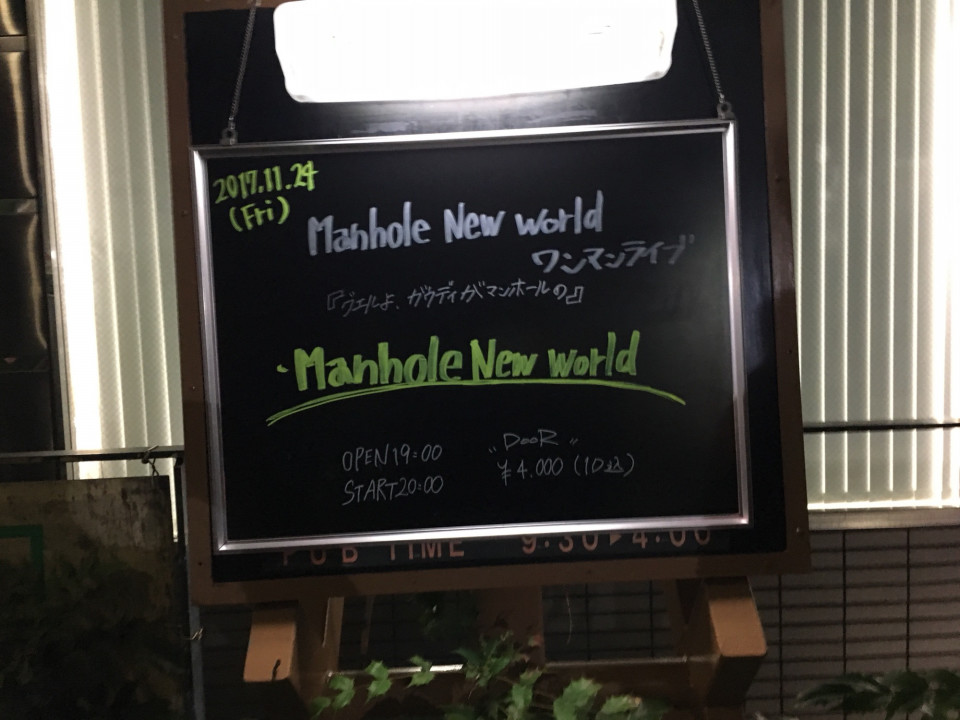 2017.11.24
(Fri)
Manhole New world
ワンマンライブ
『ヴェルよ、ガウディがマンホールの』
・Manhole New world
OPEN 19:00
START 20:00
"DooR"
¥4.000 (1D込)
PUB TIME 9:30▶4:00